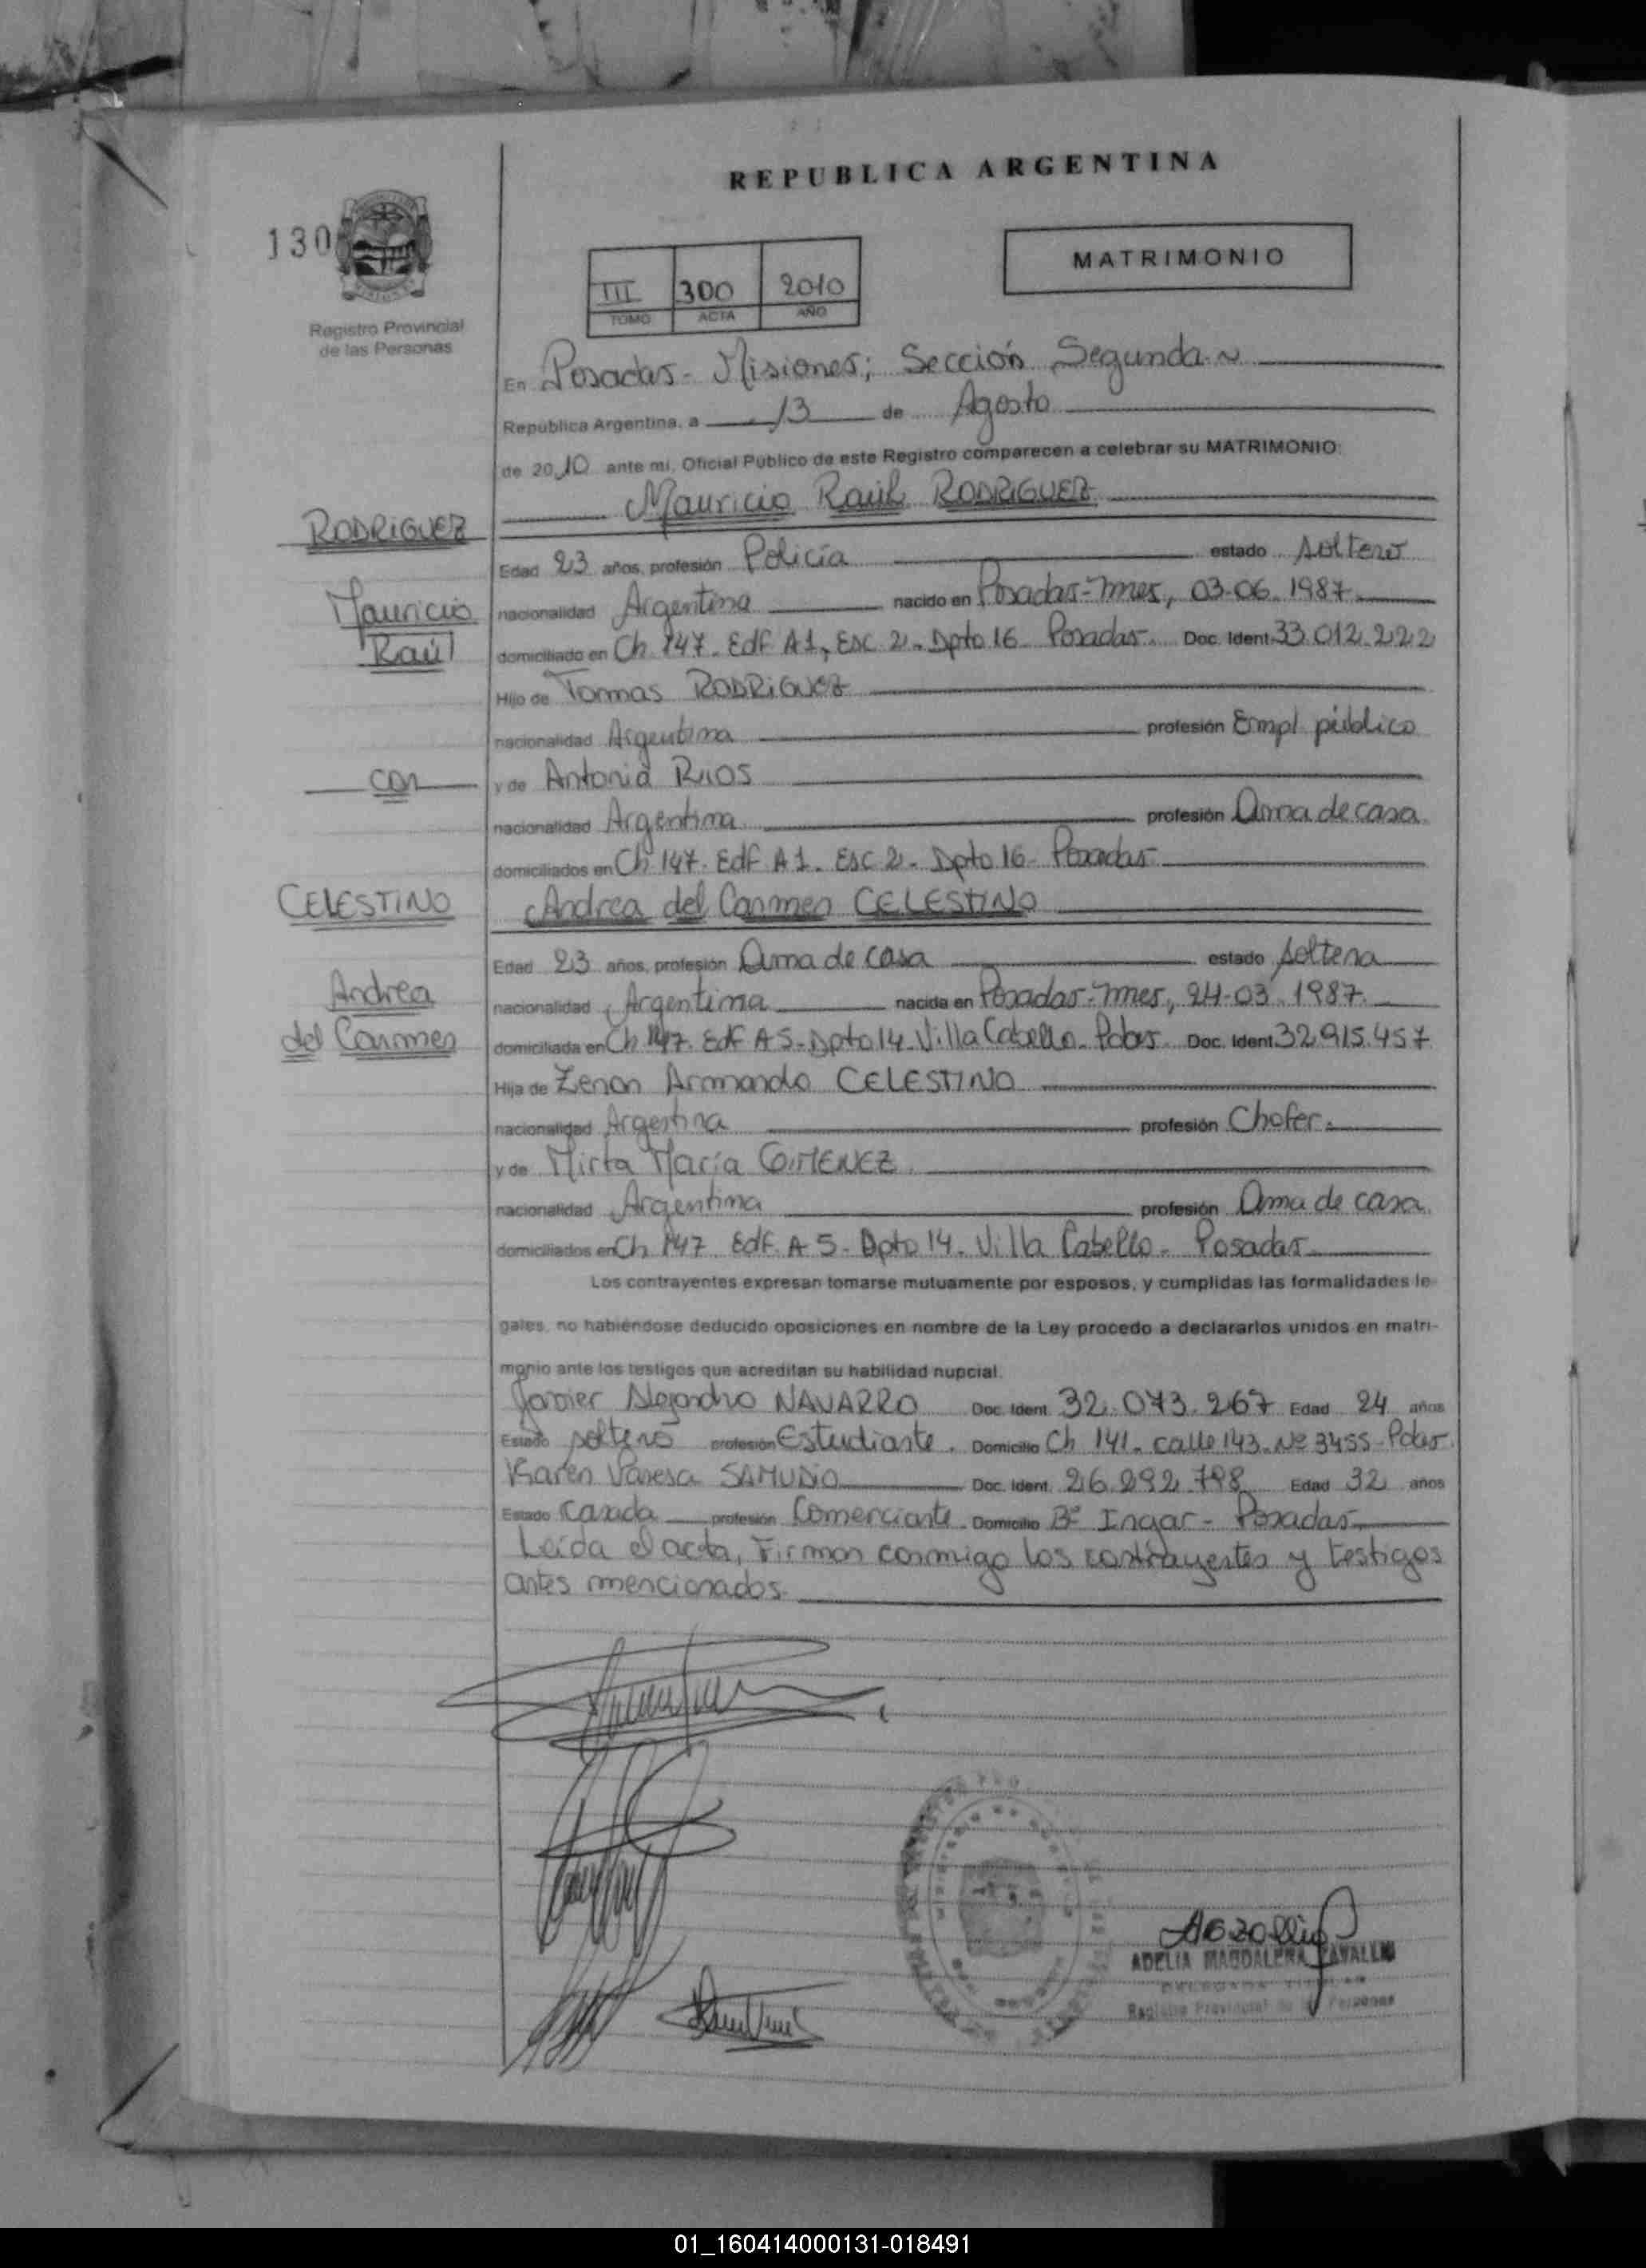 REPUBLICA ARGENTINA
130
MATRIMONIO
III 300 2010
TOMO ACTA AÑO
Registro Provincial
de las Personas
En Posadas - Misiones; Sección Segunda
Republica Argentina, a 13 de Agosto
de 2010 ante mi, Oficial Público de este Registro comparecen a celebrar su MATRIMONIO:
Mauricio Raúl RODRIGUEZ
RODRIGUEZ
Edad 23 años, profesión Policía estado soltero
Mauricio
nacionalidad Argentina nacido en Posadas-Mnes, 03-06-1987
Raúl
domiciliado en Ch 147. Edf A1, Esc. 2. Dpto 16 Posadas. Doc. Ident. 33.012.222
Hijo de Tormas RODRIGUEZ
nacionalidad Argentina profesión Empl. público
con
y de Antonia RIOS
nacionalidad Argentina profesión Ama de casa
domiciliados en Ch 147. Edf A1. Esc 2. Dpto 16 - Posadas
CELESTINO
Andrea del Carmen CELESTINO
Edad 23 años, profesión Ama de casa estado soltera
Andrea
nacionalidad Argentina nacida en Posadas-Mnes, 24-03-1987
del Carmen
domiciliada en Ch 147. Edf A5-Dpto 14-Villa Cabello. Pdas. Doc. Ident. 32.915.457
Hija de Zenon Armando CELESTINO
nacionalidad Argentina profesión Chofer.
y de Mirta María GIMENEZ
nacionalidad Argentina profesión Ama de casa
domiciliados en Ch 147 Edf. A5- Dpto 14. Villa Cabello - Posadas
Los contrayentes expresan tomarse mutuamente por esposos, y cumplidas las formalidades le-
gales, no habiéndose deducido oposiciones en nombre de la Ley procedo a declararlos unidos en matri-
monio ante los testigos que acreditan su habilidad nupcial.
Javier Alejandro NAVARRO Doc. Ident. 32.073.267 Edad 24 años
Estado soltero profesión Estudiante. Domicilio Ch 141. calle 143. Nº 3455-Pdas.
Karen Vanesa SAMUDIO Doc. Ident. 26.292.798 Edad 32 años
Estado casada profesión Comerciante. Domicilio Bº Ingar - Posadas
Leída el acta, Firman conmigo los contrayentes y testigos
antes mencionados.
ADELIA MAGDALENA ZAVALLIN
DELEGADA TITULAR
Registro Provincial de las Personas
01_160414000131-018491